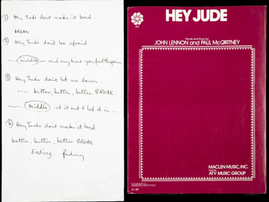 ① Hey Jude don't make it bad
BREAK
② Hey Jude don't be afraid
— middle — and anytime you feel the pain
③ Hey Jude don't let me down
— better, better, better BREAK
— Middle — let it out & let it in —
④ Hey Jude don't make it bad
better, better, better BREAK
Ending fading
HEY JUDE
Words and Music by
JOHN LENNON and PAUL McCARTNEY
MACLEN MUSIC, INC.
ATV MUSIC GROUP